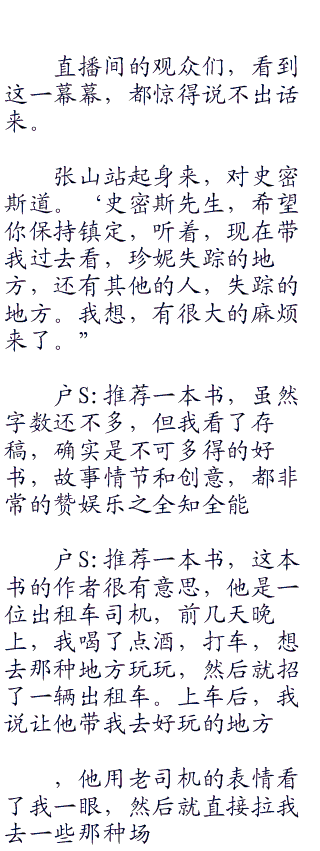 直播间的观众们，看到
这一幕幕，都惊得说不出话
来。
张山站起身来，对史密
斯道。‘史密斯先生，希望
你保持镇定，听着，现在带
我过去看，珍妮失踪的地
方，还有其他的人，失踪的
地方。我想，有很大的麻烦
来了。”
户S:推荐一本书，虽然
字数还不多，但我看了存
稿，确实是不可多得的好
书，故事情节和创意，都非
常的赞娱乐之全知全能
户S:推荐一本书，这本
书的作者很有意思，他是一
位出租车司机，前几天晚
上，我喝了点酒，打车，想
去那种地方玩玩，然后就招
了一辆出租车。上车后，我
说让他带我去好玩的地方
，他用老司机的表情看
了我一眼，然后就直接拉我
去一些那种场